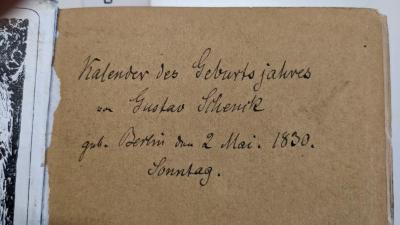 Kalender des Geburtsjahres
von Gustav Schenck
geb. Berlin den 2 Mai. 1830.
Sonntag.